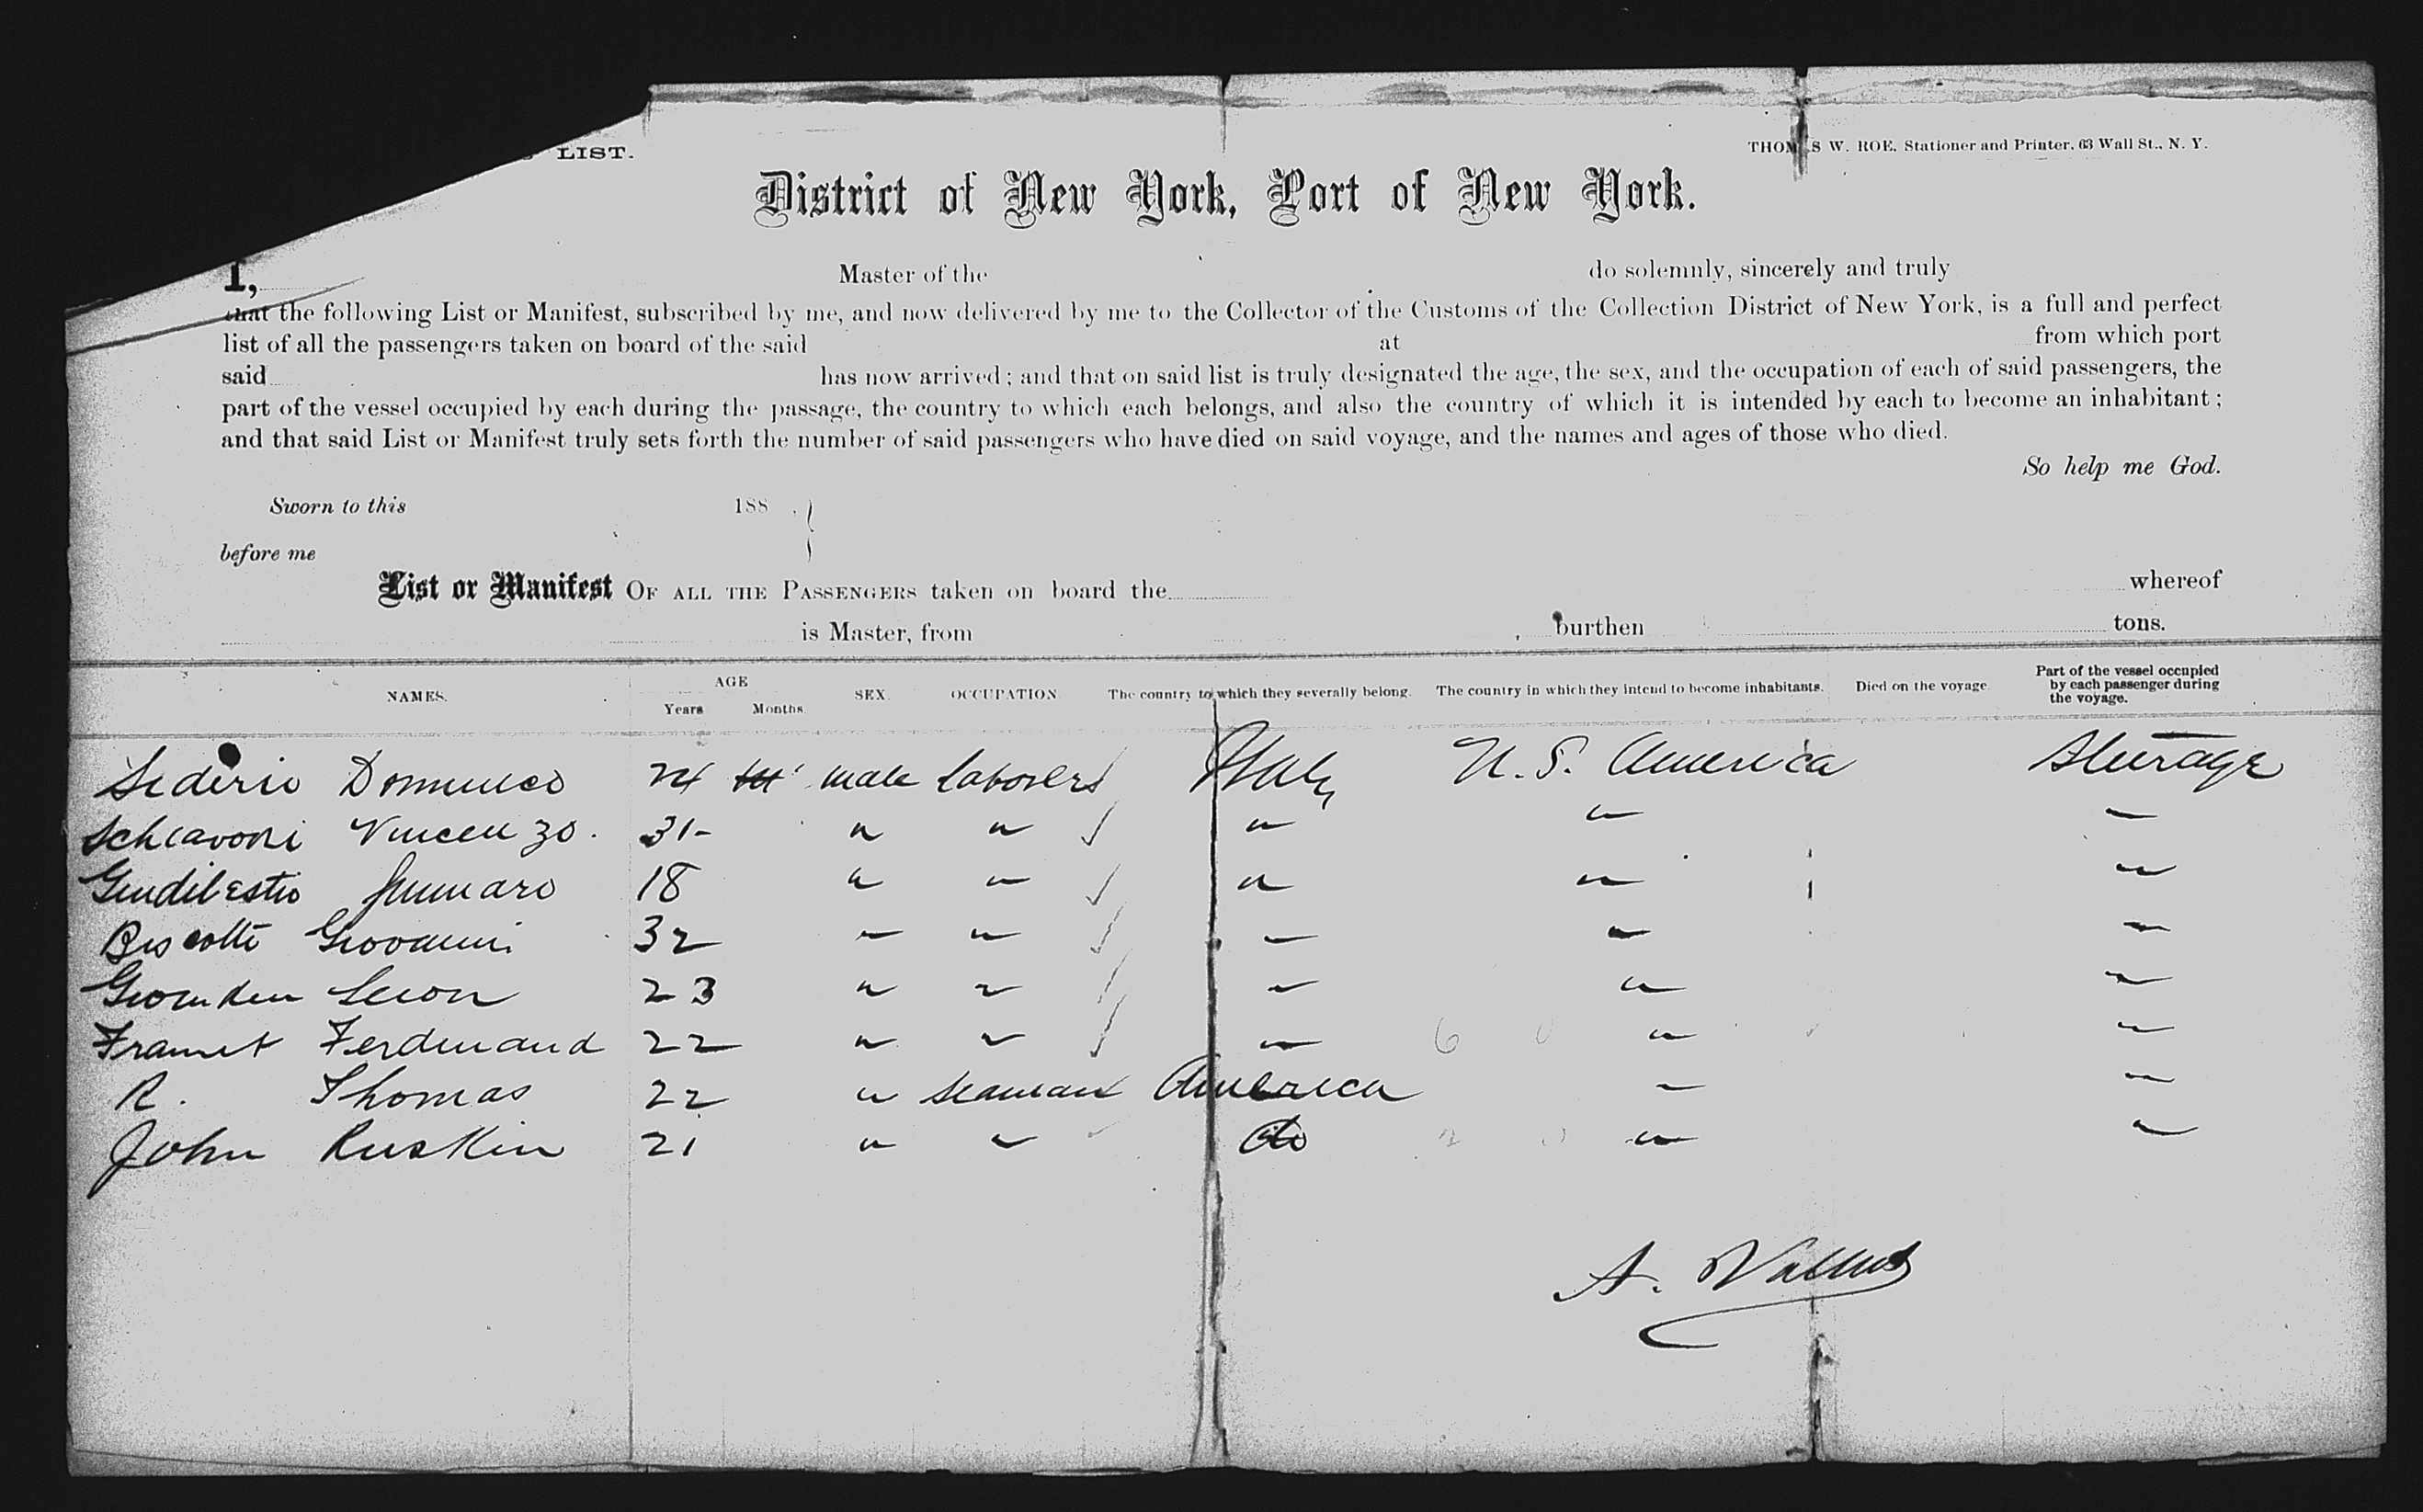 LIST.
THOMAS W. ROE, Stationer and Printer, 63 Wall St., N. Y.
District of New York, Port of New York.
I, Master of the do solemnly, sincerely and truly
that the following List or Manifest, subscribed by me, and now delivered by me to the Collector of the Customs of the Collection District of New York, is a full and perfect
list of all the passengers taken on board of the said at from which port
said has now arrived; and that on said list is truly designated the age, the sex, and the occupation of each of said passengers, the
part of the vessel occupied by each during the passage, the country to which each belongs, and also the country of which it is intended by each to become an inhabitant;
and that said List or Manifest truly sets forth the number of said passengers who have died on said voyage, and the names and ages of those who died.
So help me God.
Sworn to this 188 .
before me
List or Manifest OF ALL THE PASSENGERS taken on board the whereof
is Master, from , burthen tons.
NAMES. AGE Years Months. SEX. OCCUPATION. The country to which they severally belong. The country in which they intend to become inhabitants. Died on the voyage. Part of the vessel occupied by each passenger during the voyage.
Domenico 24 male laborers Italy U. S. America Steerage
Schiavoni Vincenzo. 31- " " " " "
Gennaro 18 " " " " "
Biscotti Giovanni 32 " " " " "
Leon 23 " " " " "
Framet Ferdinand 22 " " " 6 0 " "
R. Thomas 22 " seaman America " "
John Ruskin 21 " " do " "
A.